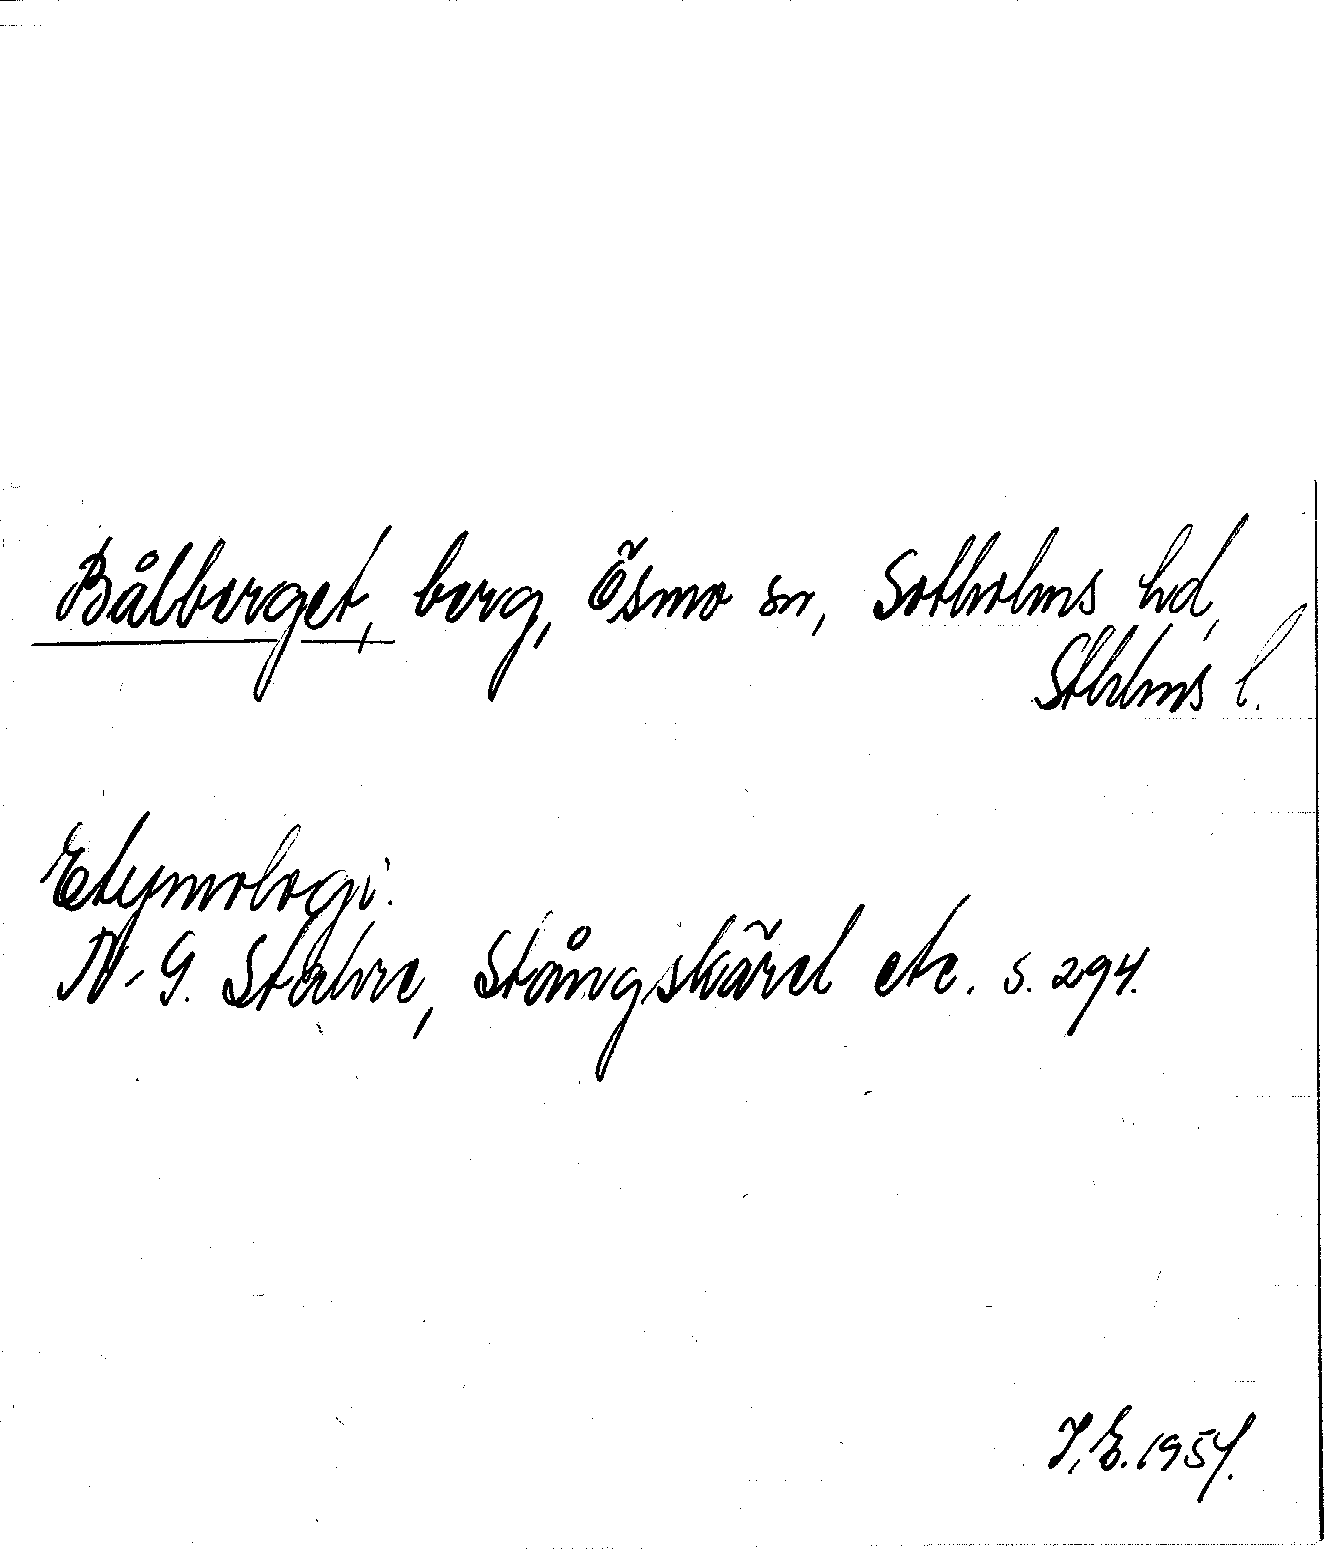 Bålberget, berg, Ösmo sn, Sotholms hd,
Sthlms l.
Etymologi:
N-G. Stahre, Stångskärel etc. s. 294.
I.E. 1954.